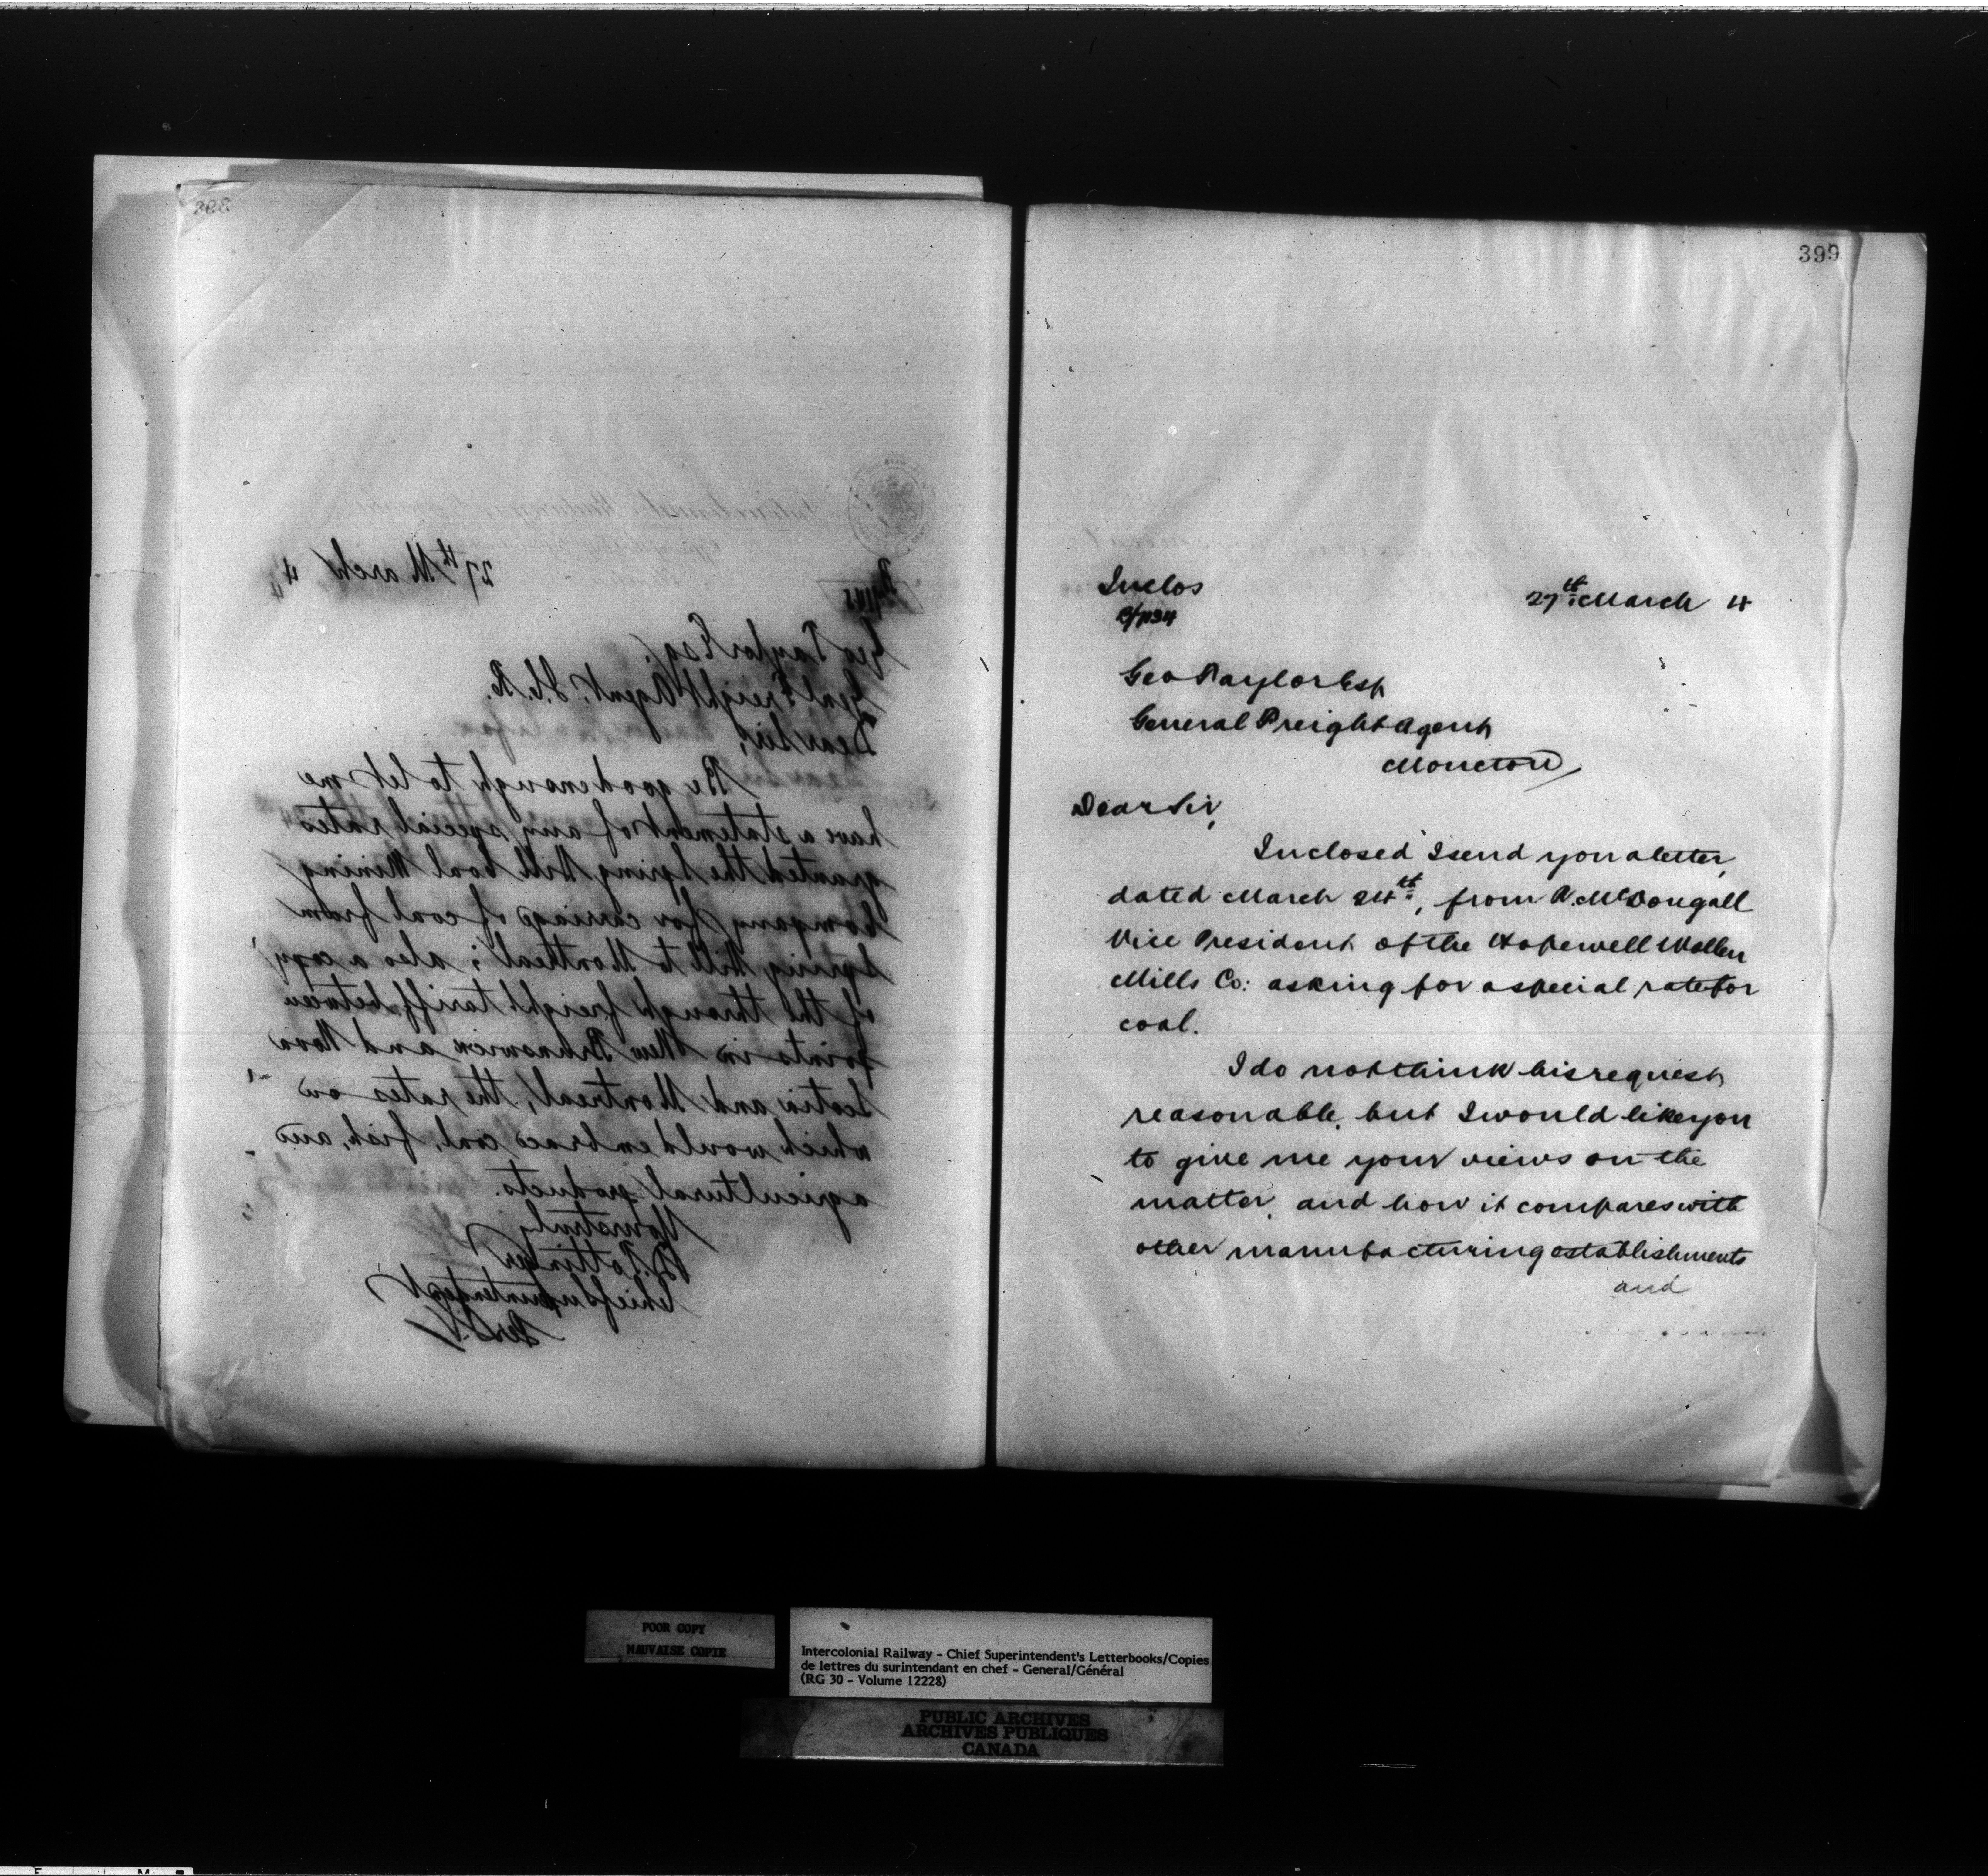 398
27th March 4
Geo Taylor Esq.
Genl Freight Agent. I.C.R.
Dear Sir,
Be good enough to let me
have a statement of any special rates
granted the Spring Hill Coal Mining
Company for carriage of coal from
Spring Hill to Montreal; also a copy
of the through freight tariff between
points in New Brunswick and Nova
Scotia and Montreal, the rates on
which would embrace coal, fish, and
agricultural products.
Yours truly
D. Pottinger
Chief Superintendent
399
Inclos
27th March 4
Geo Taylor Esq
General Freight Agent
Moncton
Dear Sir,
Inclosed I send you a letter,
dated March 24th, from A. McDougall
Vice President of the Hopewell Wollen
Mills Co: asking for a special rate for
coal.
I do not think his request
reasonable, but I would like you
to give me your views on the
matter, and how it compares with
other manufacturing establishments
and
POOR COPY
MAUVAISE COPIE
Intercolonial Railway - Chief Superintendent's Letterbooks/Copies
de lettres du surintendant en chef - General/Général
(RG 30 - Volume 12228)
PUBLIC ARCHIVES
ARCHIVES PUBLIQUES
CANADA